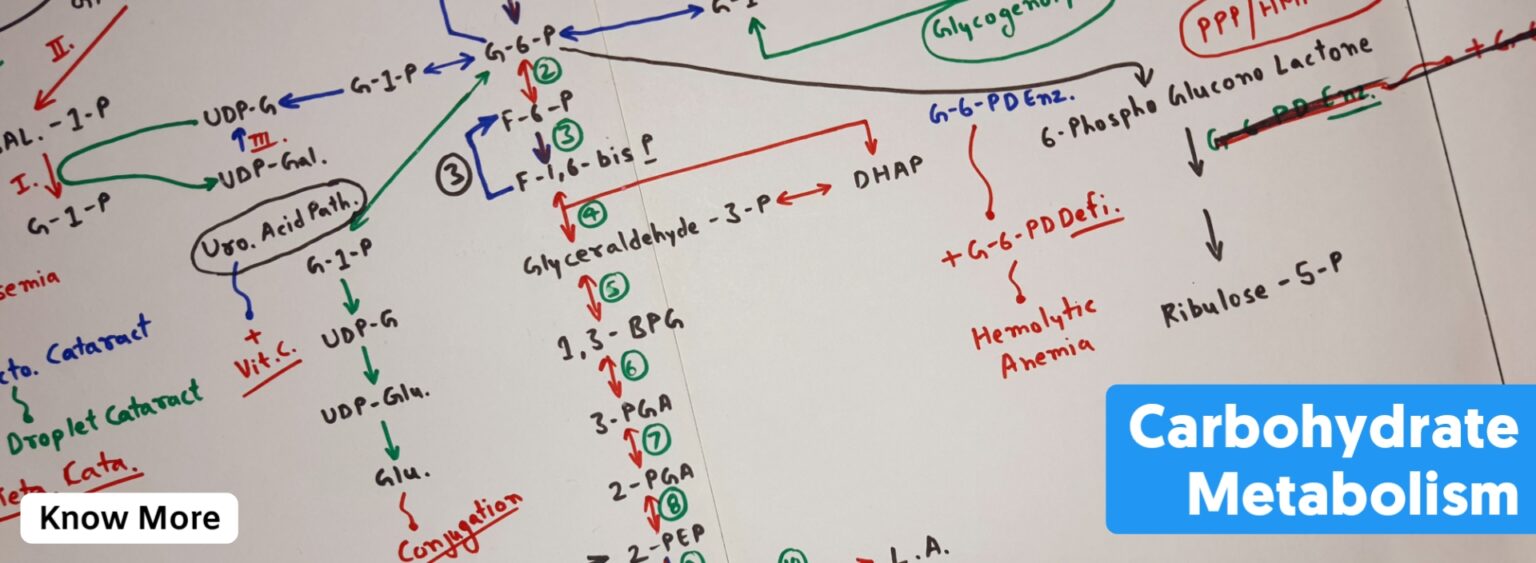 II.
G-6-P
Glycogenoly
PPP/HM
②
G-1-P
UDP-G
AL.-1-P
III.
UDP-Gal.
I.
G-1-P
F-6-P
③
③
F-1,6-bis P
④
Glyceraldehyde-3-P
DHAP
G-6-PD Enz.
6-Phospho Glucono Lactone
G-6-PD Enz.
+ G-6
+ G-6-PD Defi.
Hemolytic
Anemia
Ribulose-5-P
Uro. Acid Path.
G-1-P
+
Vit.C.
UDP-G
UDP-Glu.
Glu.
Conjugation
semia
cto. Cataract
Droplet Cataract
Cata.
⑤
1,3-BPG
⑥
3-PGA
⑦
2-PGA
⑧
2-PEP
L.A.
Carbohydrate
Metabolism
Know More